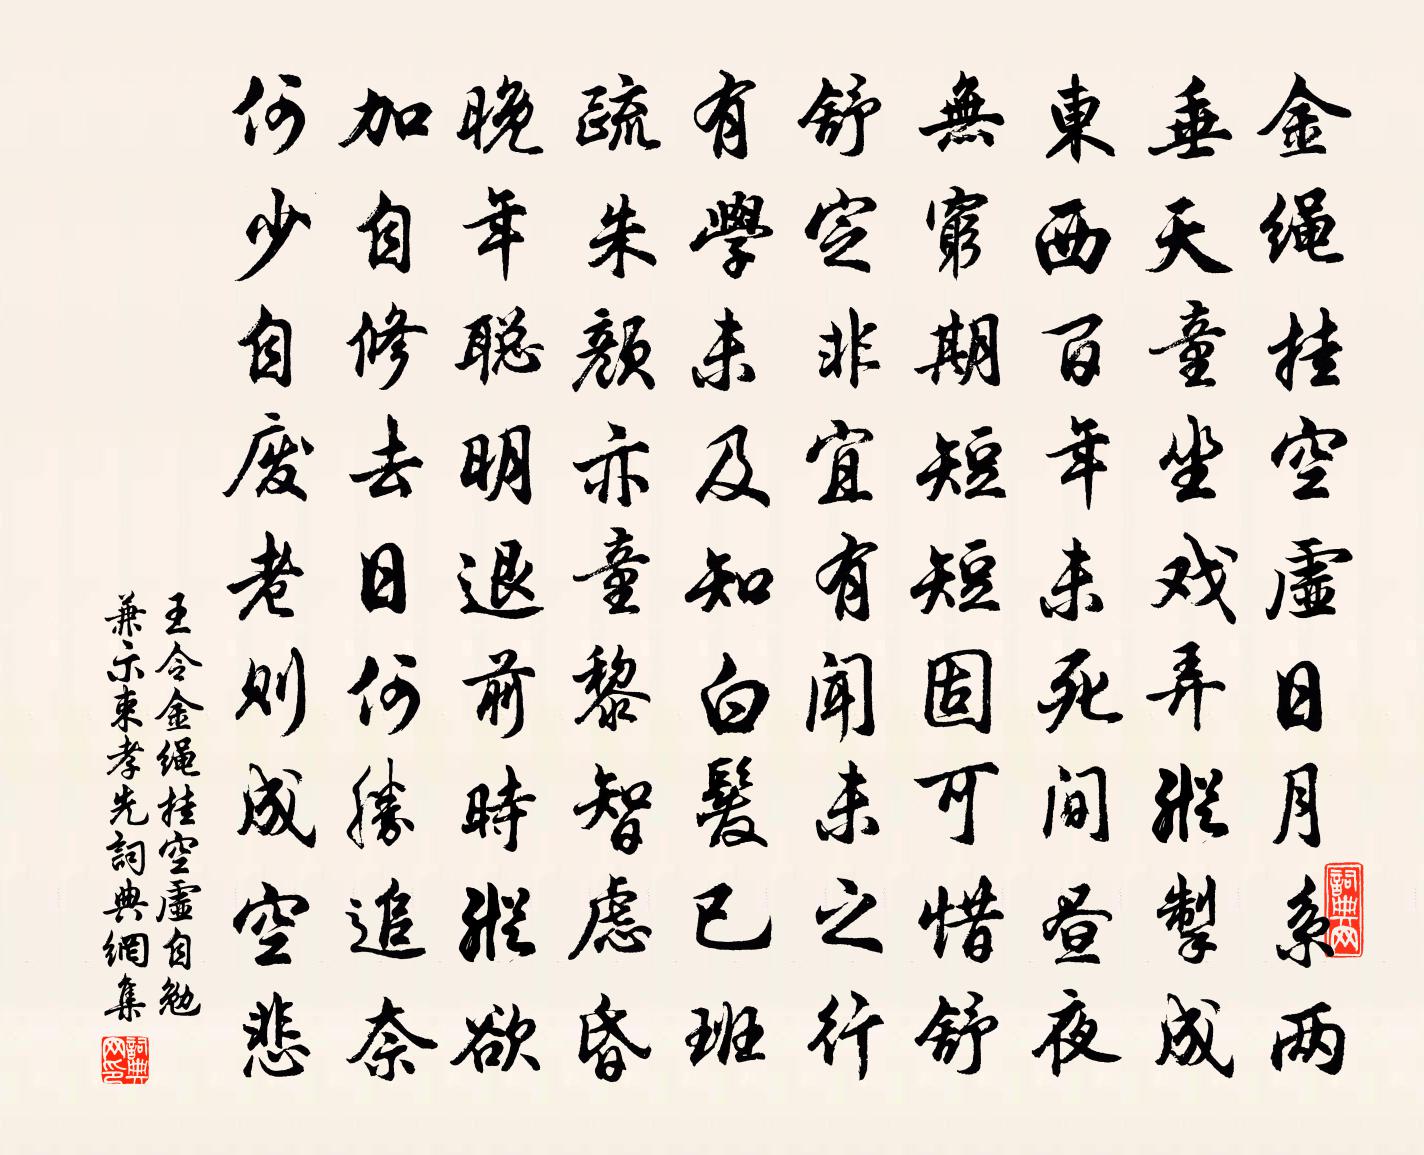 金绳挂空虚日月系两
垂天童坐戏弄纵掣成
東西百年未死间昼夜
無窮期短短固可惜舒
舒定非宜有闻未之行
有學未及知白髮已班
疏朱颜亦童黎智虑昏
晚年聪明退前時纵欲
加自修去日何勝追奈
何少自废老则成空悲
王令金绳挂空虚自勉
兼示束孝先詞典網集
詞典网
詞典网印